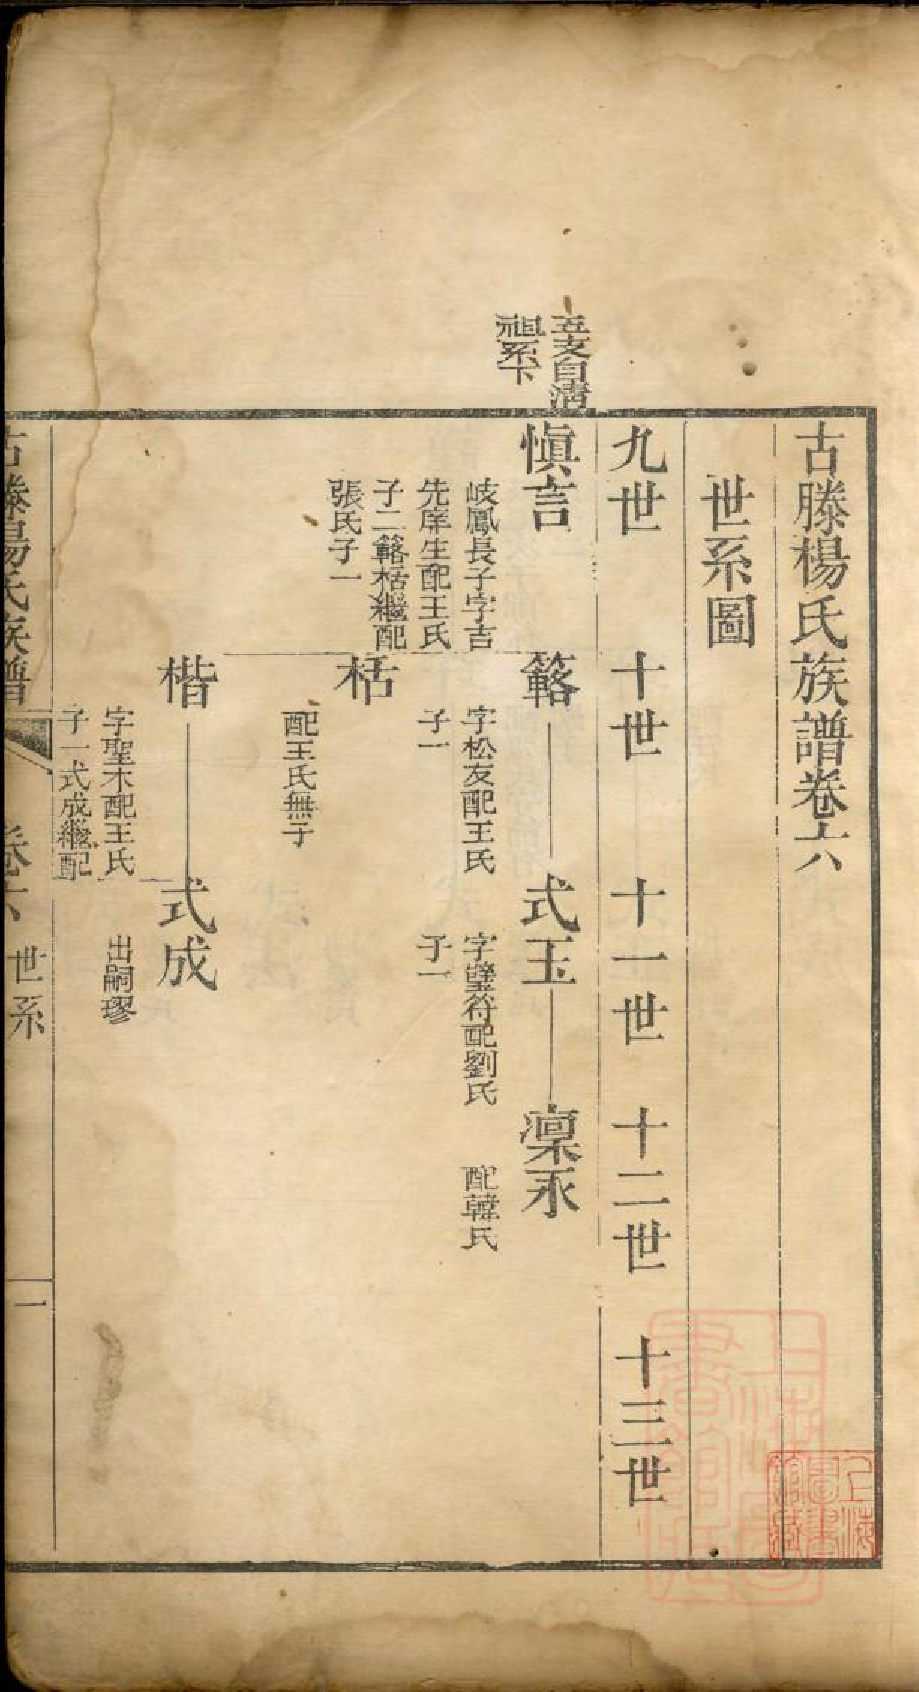 古滕楊氏族譜卷六
世系圖
九世 十世 十一世 十二世 十三世
五支自清
祖系下
慎言
岐鳳長子字吉
先庠生配王氏
子二簵楛繼配
張氏子一
簵
字松友配王氏
子一
式玉
字璧符配劉氏
子一
凜永
配韓氏
楛
配王氏無子
楷
字聖木配王氏
子一式成繼配
式成
出嗣璆
古滕楊氏族譜 卷六 世系 一
上海圖書館藏
上海圖書館藏